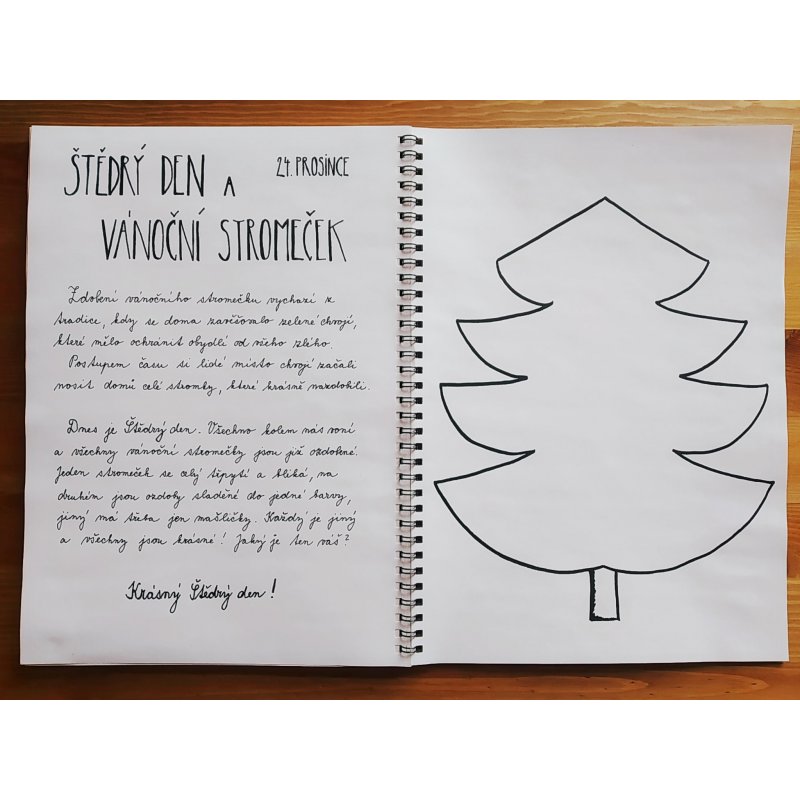 ŠTĚDRÝ DEN A
24. PROSINCE
VÁNOČNÍ STROMEČEK
Zdobení vánočního stromečku vychází z
tradice, kdy se doma zavěšovalo zelené chvojí,
které mělo ochránit obydlí od všeho zlého.
Postupem času si lidé místo chvojí začali
nosit domů celé stromky, které krásně nazdobili.
Dnes je Štědrý den. Všechno kolem nás voní
a všechny vánoční stromečky jsou již ozdobené.
Jeden stromeček se celý třpytí a bliká, na
druhém jsou ozdoby sladěné do jedné barvy,
jiný má třeba jen mašličky. Každý je jiný
a všechny jsou krásné! Jaký je ten váš?
Krásný Štědrý den!